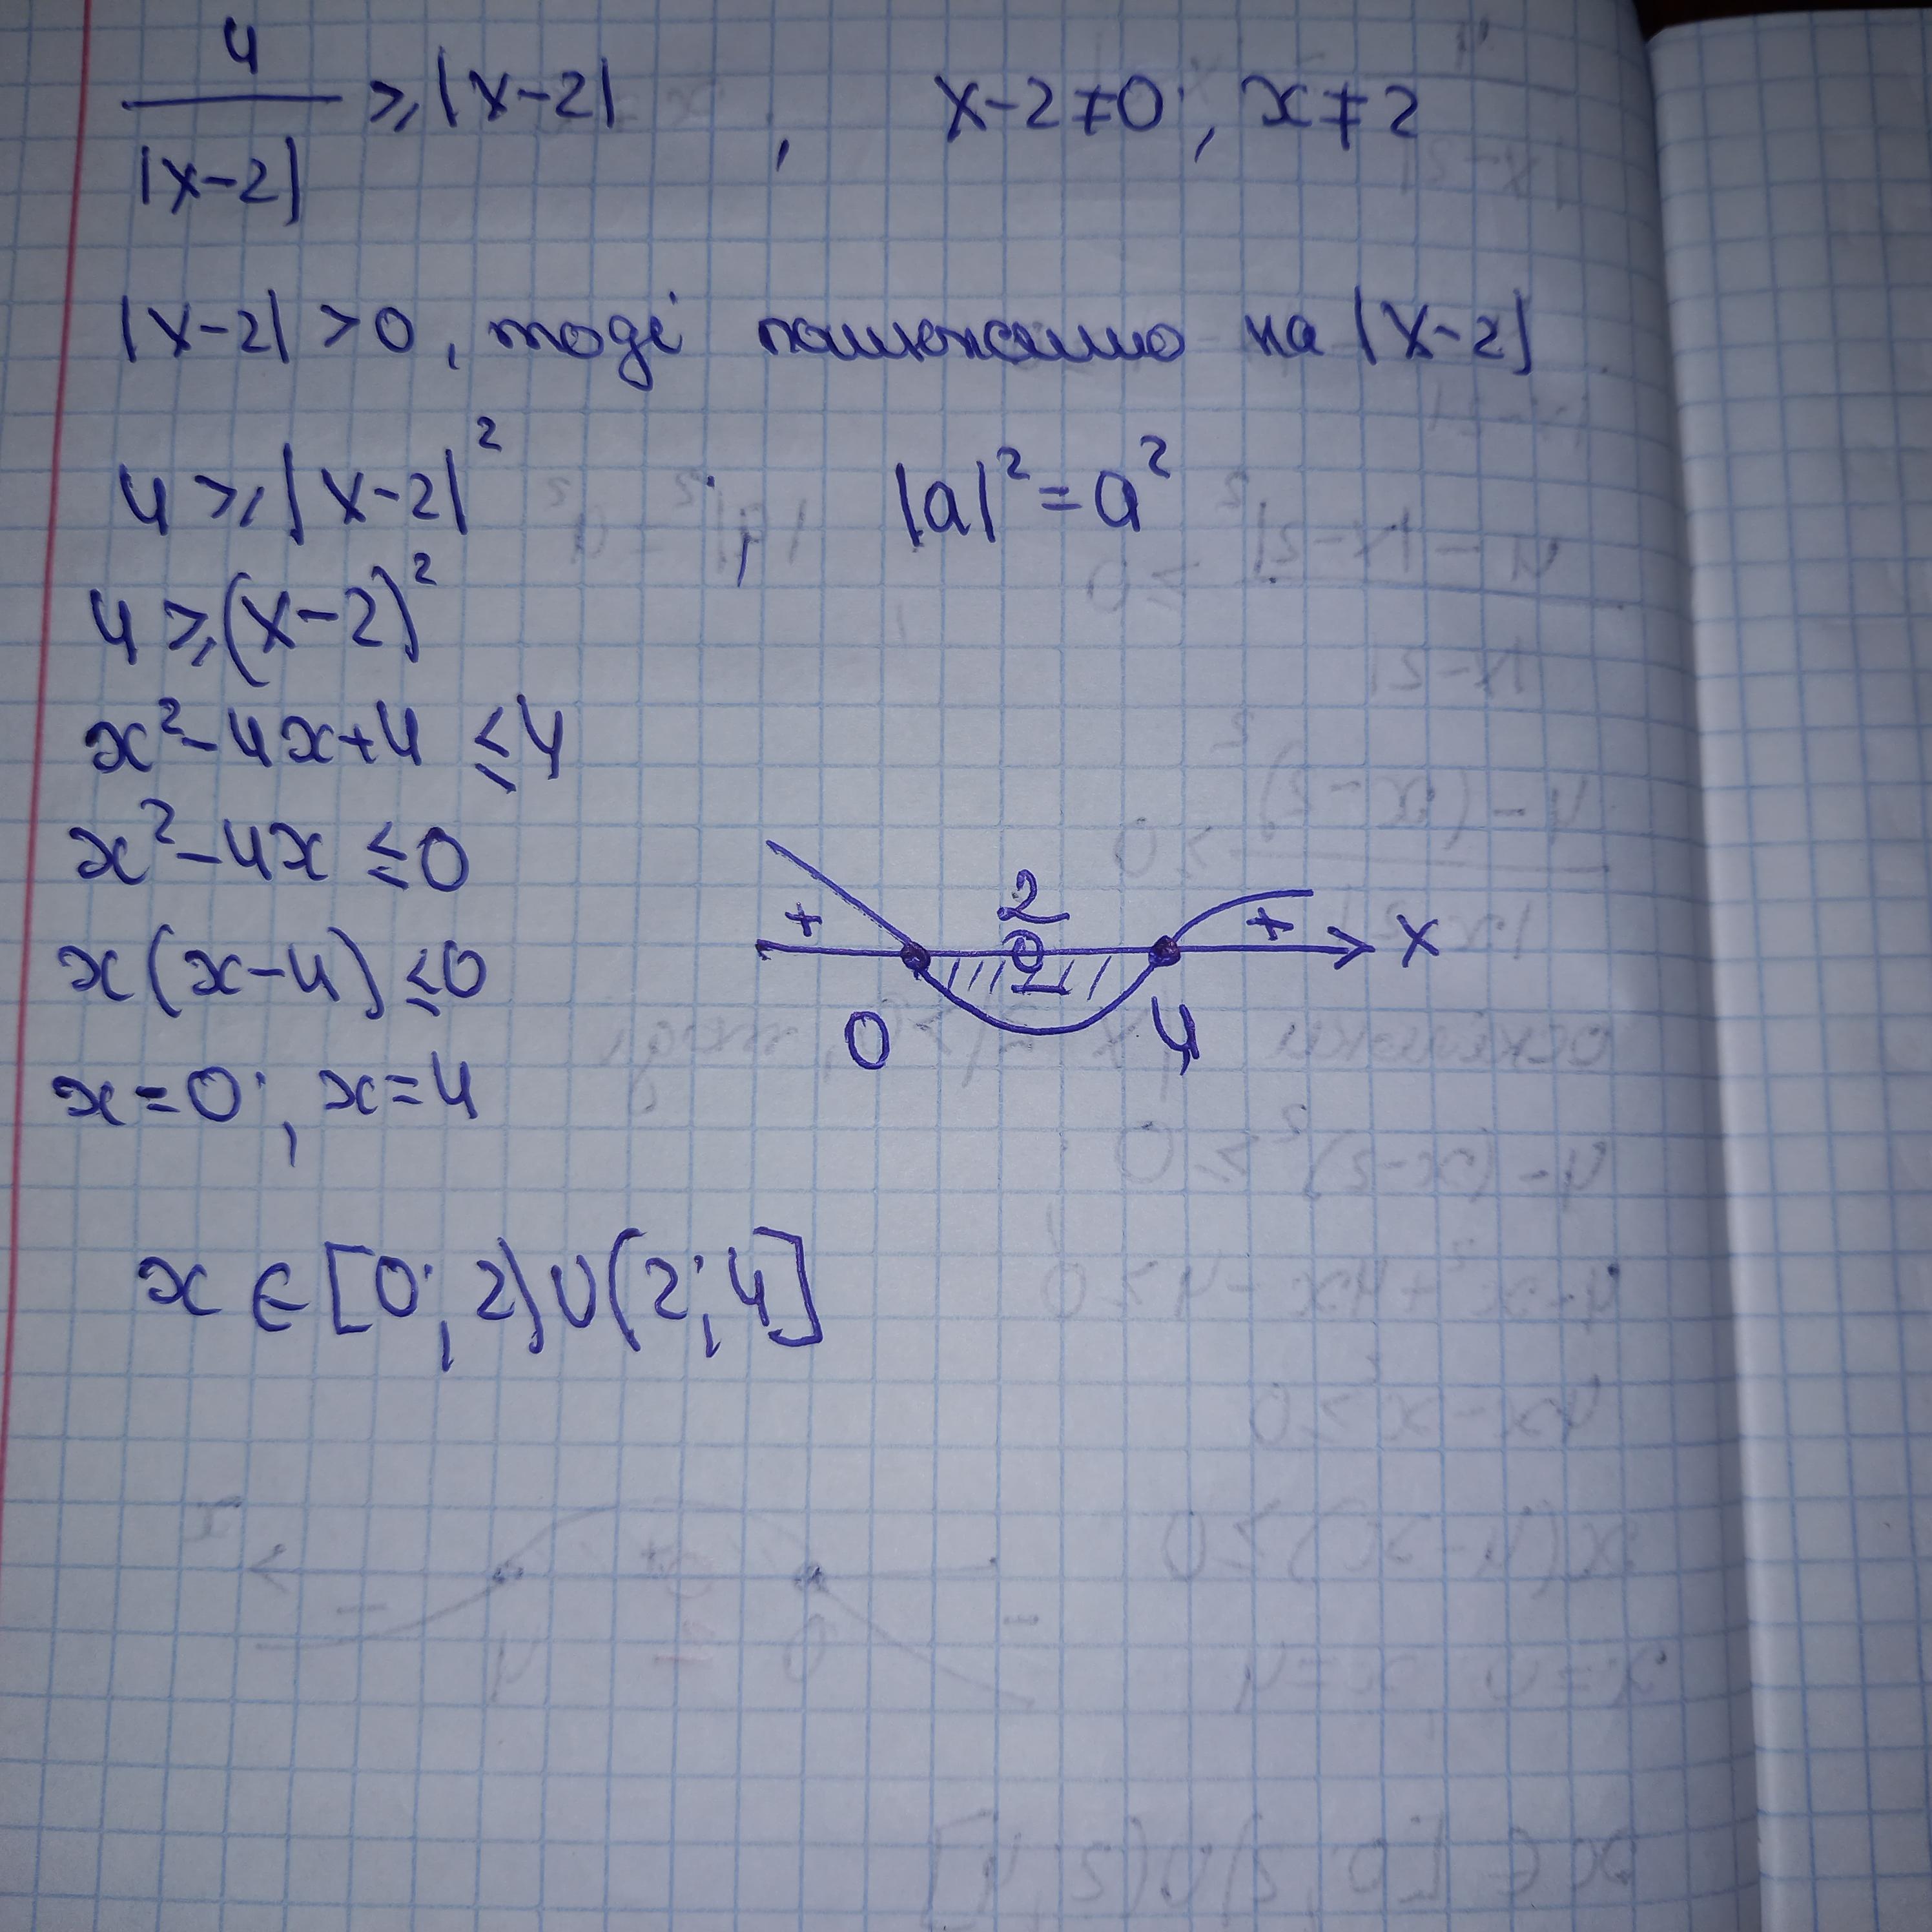 4/|x-2| ≥ |x-2| , x-2≠0; x≠2
|x-2|>0, тоді помножимо на |x-2|
4 ≥ |x-2|² , |a|²=a²
4 ≥ (x-2)²
x²-4x+4 ≤ 4
x²-4x ≤ 0
x(x-4) ≤ 0
x=0; x=4
+ 2 + x
0 4
x ∈ [0; 2) ∪ (2; 4]